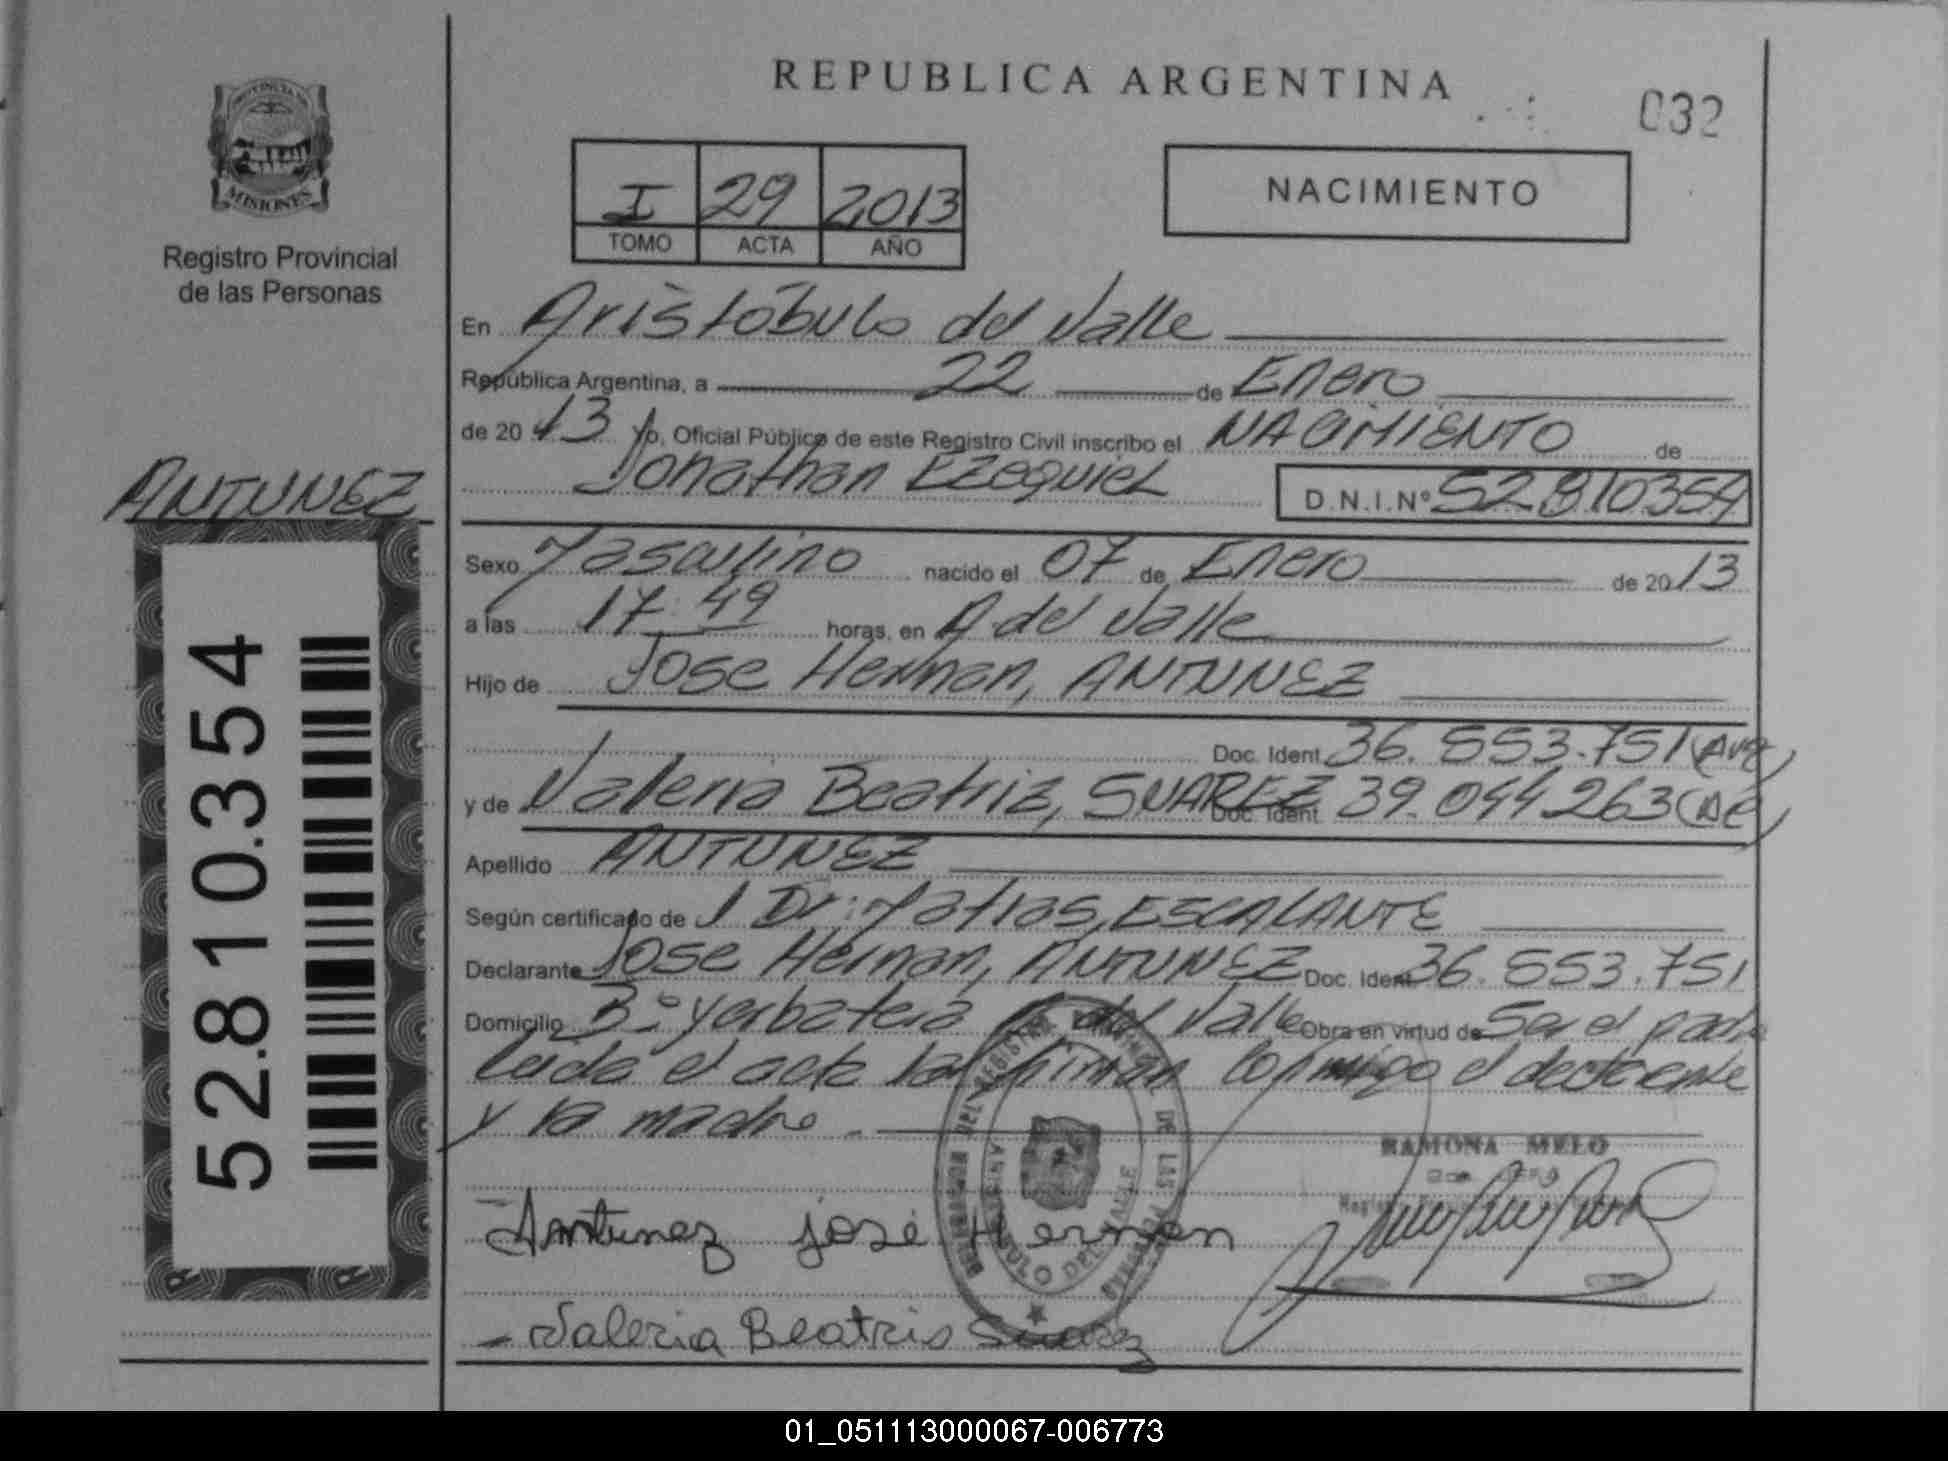 REPUBLICA ARGENTINA
032
PROVINCIA DE
MISIONES
Registro Provincial
de las Personas
I 29 2013
TOMO ACTA AÑO
NACIMIENTO
En Aristóbulo del Valle
República Argentina, a 22 de Enero
de 2013 Yo, Oficial Público de este Registro Civil inscribo el NACIMIENTO de
Jonathan Ezequiel D.N.I.Nº 52.810354
ANTUNEZ
52.810.354
Sexo Masculino nacido el 07 de Enero de 2013
a las 17:49 horas, en A del Valle
Hijo de Jose Hernan, ANTUNEZ
Doc. Ident. 36.553.751 (Arg)
y de Valeria Beatriz, SUAREZ Doc. Ident. 39.044263
Apellido ANTUNEZ
Según certificado de Dr: Matias, ESCALANTE
Declarante Jose Hernan, ANTUNEZ Doc. Ident. 36.553.751
Domicilio Bº Yerbatera A del Valle Obra en virtud de Ser el padre
Leida el acta la firman conmigo el declarante
y la madre.
RAMONA MELO
Antunez josé Hernan
ARISTOBULO DEL VALLE
Valeria Beatris Suarez
01_051113000067-006773